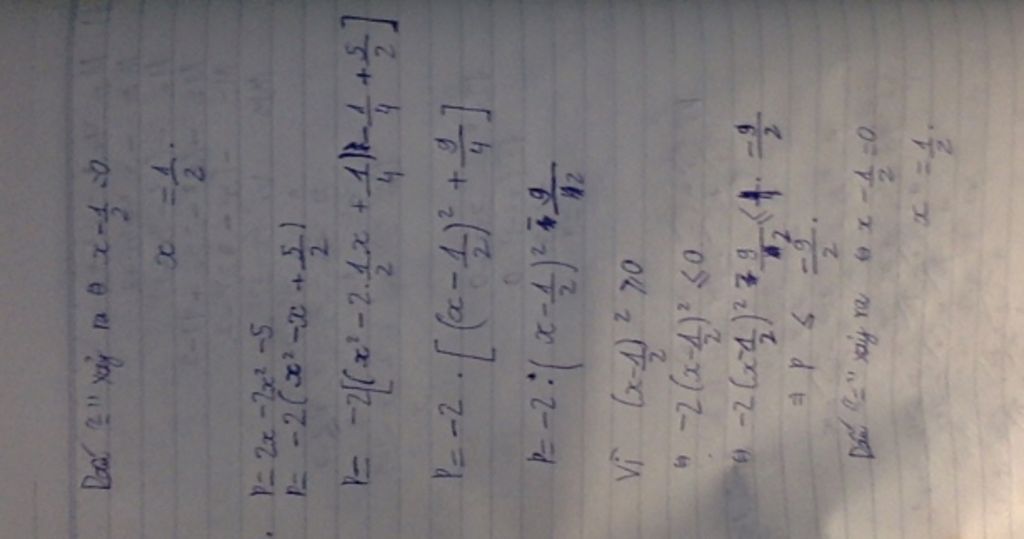 Dấu "=" xảy ra ⇔ x - 1/2 = 0
x = 1/2.
P = 2x - 2x² - 5
P = -2(x² - x + 5/2)
P = -2[(x² - 2.1/2x + 1/4) - 1/4 + 5/2]
P = -2.[(x - 1/2)² + 9/4]
P = -2.(x - 1/2)² - 9/2
Vì (x - 1/2)² ≥ 0
⇔ -2(x - 1/2)² ≤ 0
⇔ -2(x - 1/2)² - 9/2 ≤ -9/2
⇒ P ≤ -9/2.
Dấu "=" xảy ra ⇔ x - 1/2 = 0
x = 1/2.